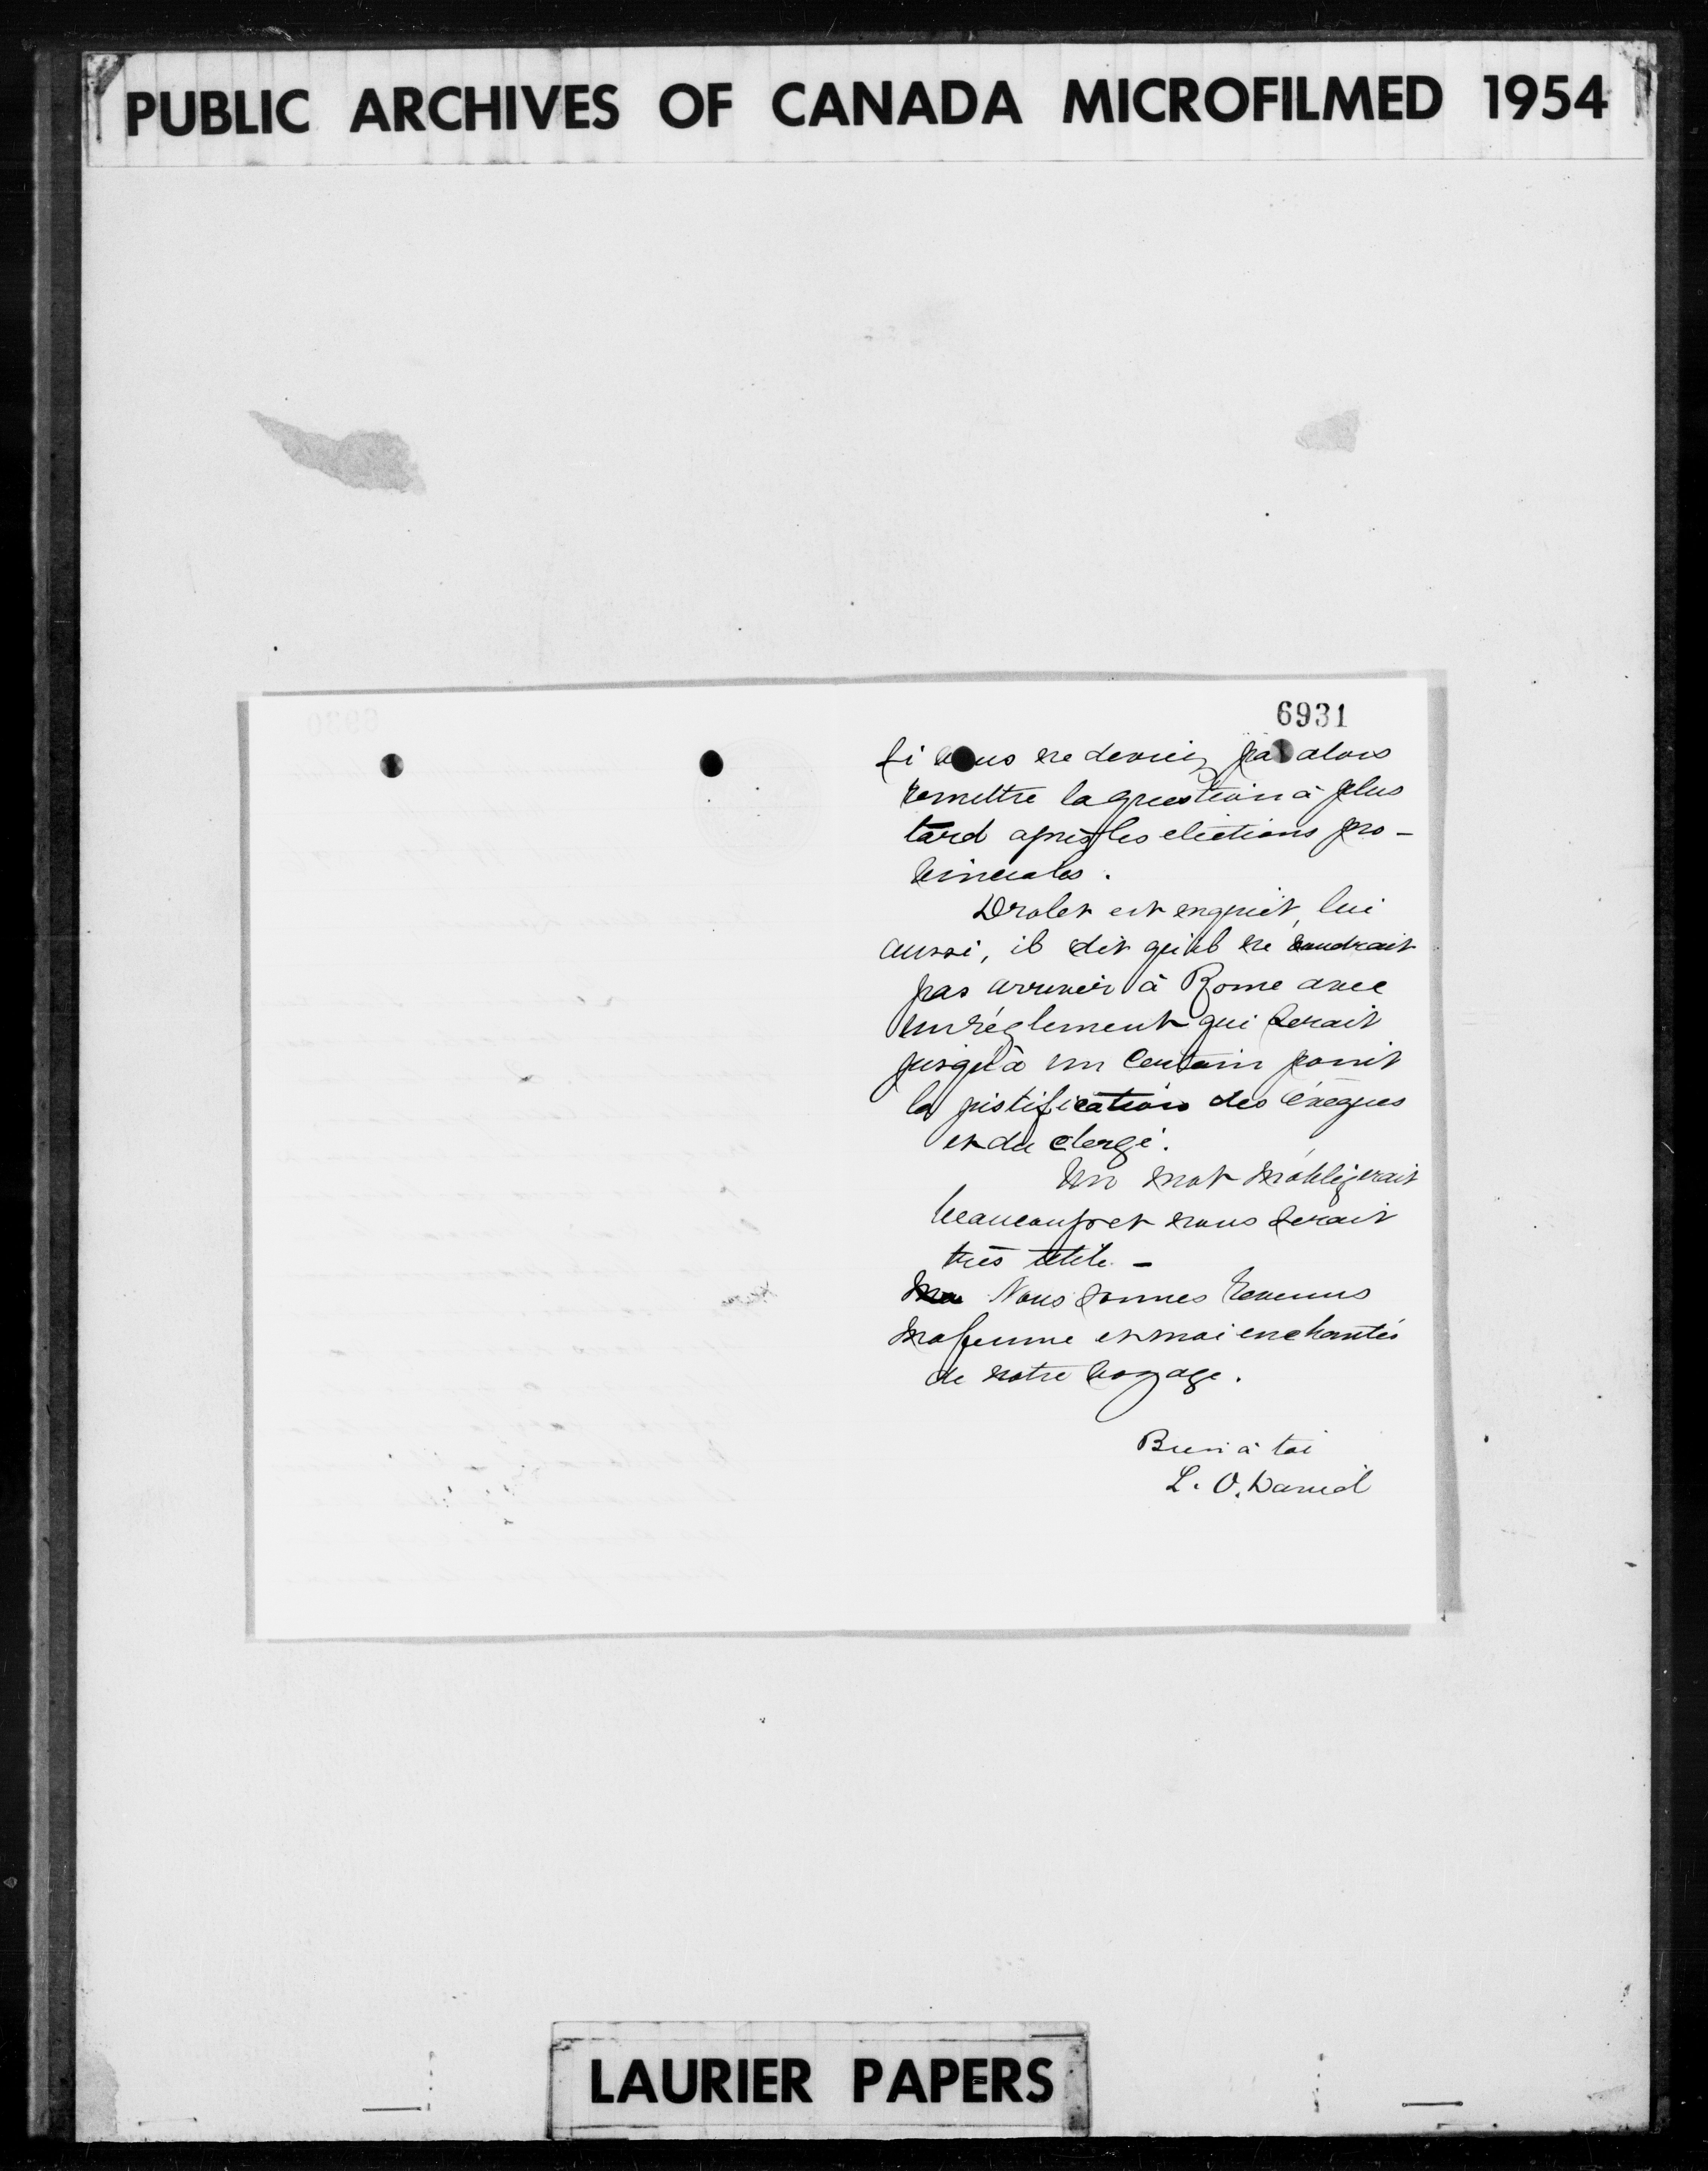 PUBLIC ARCHIVES OF CANADA MICROFILMED 1954
6931
si vous ne devriez pas alors
remettre la question à plus
tard après les elections pro-
vinciales.
Drolet est inquiet, lui
aussi, il dit qu'il ne voudrait
pas arriver à Rome avec
un réglement qui serait
jusqu'à un certain point
la justification des évêques
et du clergé.
Un mot m'obligerait
beaucoup et nous serait
très utile -
Nous sommes revenus
ma femme et moi enchantés
de notre voyage.
Bien à toi
L. O. David
LAURIER PAPERS